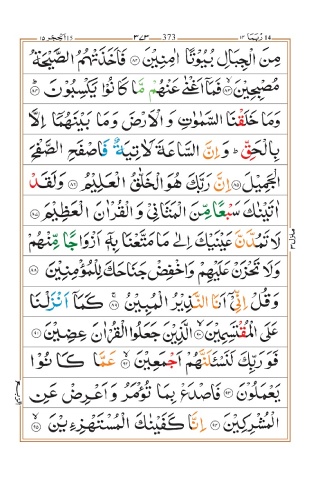 ربما ١٤ ٣٧٣ 373 الحجر ١٥
مِنَ الْجِبَالِ بُيُوْتًا اٰمِنِيْنَ ﴿۸۲﴾ فَاَخَذَتْهُمُ الصَّيْحَةُ
مُصْبِحِيْنَ ﴿۸۳﴾ فَمَاۤ اَغْنٰى عَنْهُمْ مَّا كَانُوْا يَكْسِبُوْنَ ﴿۸۴﴾
وَمَا خَلَقْنَا السَّمٰوٰتِ وَالْاَرْضَ وَمَا بَيْنَهُمَاۤ اِلَّا
بِالْحَقِّ ؕ وَاِنَّ السَّاعَةَ لَاٰتِيَةٌ فَاصْفَحِ الصَّفْحَ
الْجَمِيْلَ ﴿۸۵﴾ اِنَّ رَبَّكَ هُوَ الْخَلّٰقُ الْعَلِيْمُ ﴿۸۶﴾ وَلَقَدْ
اٰتَيْنٰكَ سَبْعًا مِّنَ الْمَثَانِيْ وَالْقُرْاٰنَ الْعَظِيْمَ ﴿۸۷﴾
لَا تَمُدَّنَّ عَيْنَيْكَ اِلٰى مَا مَتَّعْنَا بِهٖۤ اَزْوَاجًا مِّنْهُمْ
وَلَا تَحْزَنْ عَلَيْهِمْ وَاخْفِضْ جَنَاحَكَ لِلْمُؤْمِنِيْنَ ﴿۸۸﴾
وَقُلْ اِنِّيْۤ اَنَا النَّذِيْرُ الْمُبِيْنُ ﴿۸۹﴾ كَمَاۤ اَنْزَلْنَا
عَلَى الْمُقْتَسِمِيْنَ ﴿۹۰﴾ الَّذِيْنَ جَعَلُوا الْقُرْاٰنَ عِضِيْنَ ﴿۹۱﴾
فَوَرَبِّكَ لَنَسْئَلَنَّهُمْ اَجْمَعِيْنَ ﴿۹۲﴾ عَمَّا كَانُوْا
يَعْمَلُوْنَ ﴿۹۳﴾ فَاصْدَعْ بِمَا تُؤْمَرُ وَاَعْرِضْ عَنِ
الْمُشْرِكِيْنَ ﴿۹۴﴾ اِنَّا كَفَيْنٰكَ الْمُسْتَهْزِءِيْنَ ﴿۹۵﴾